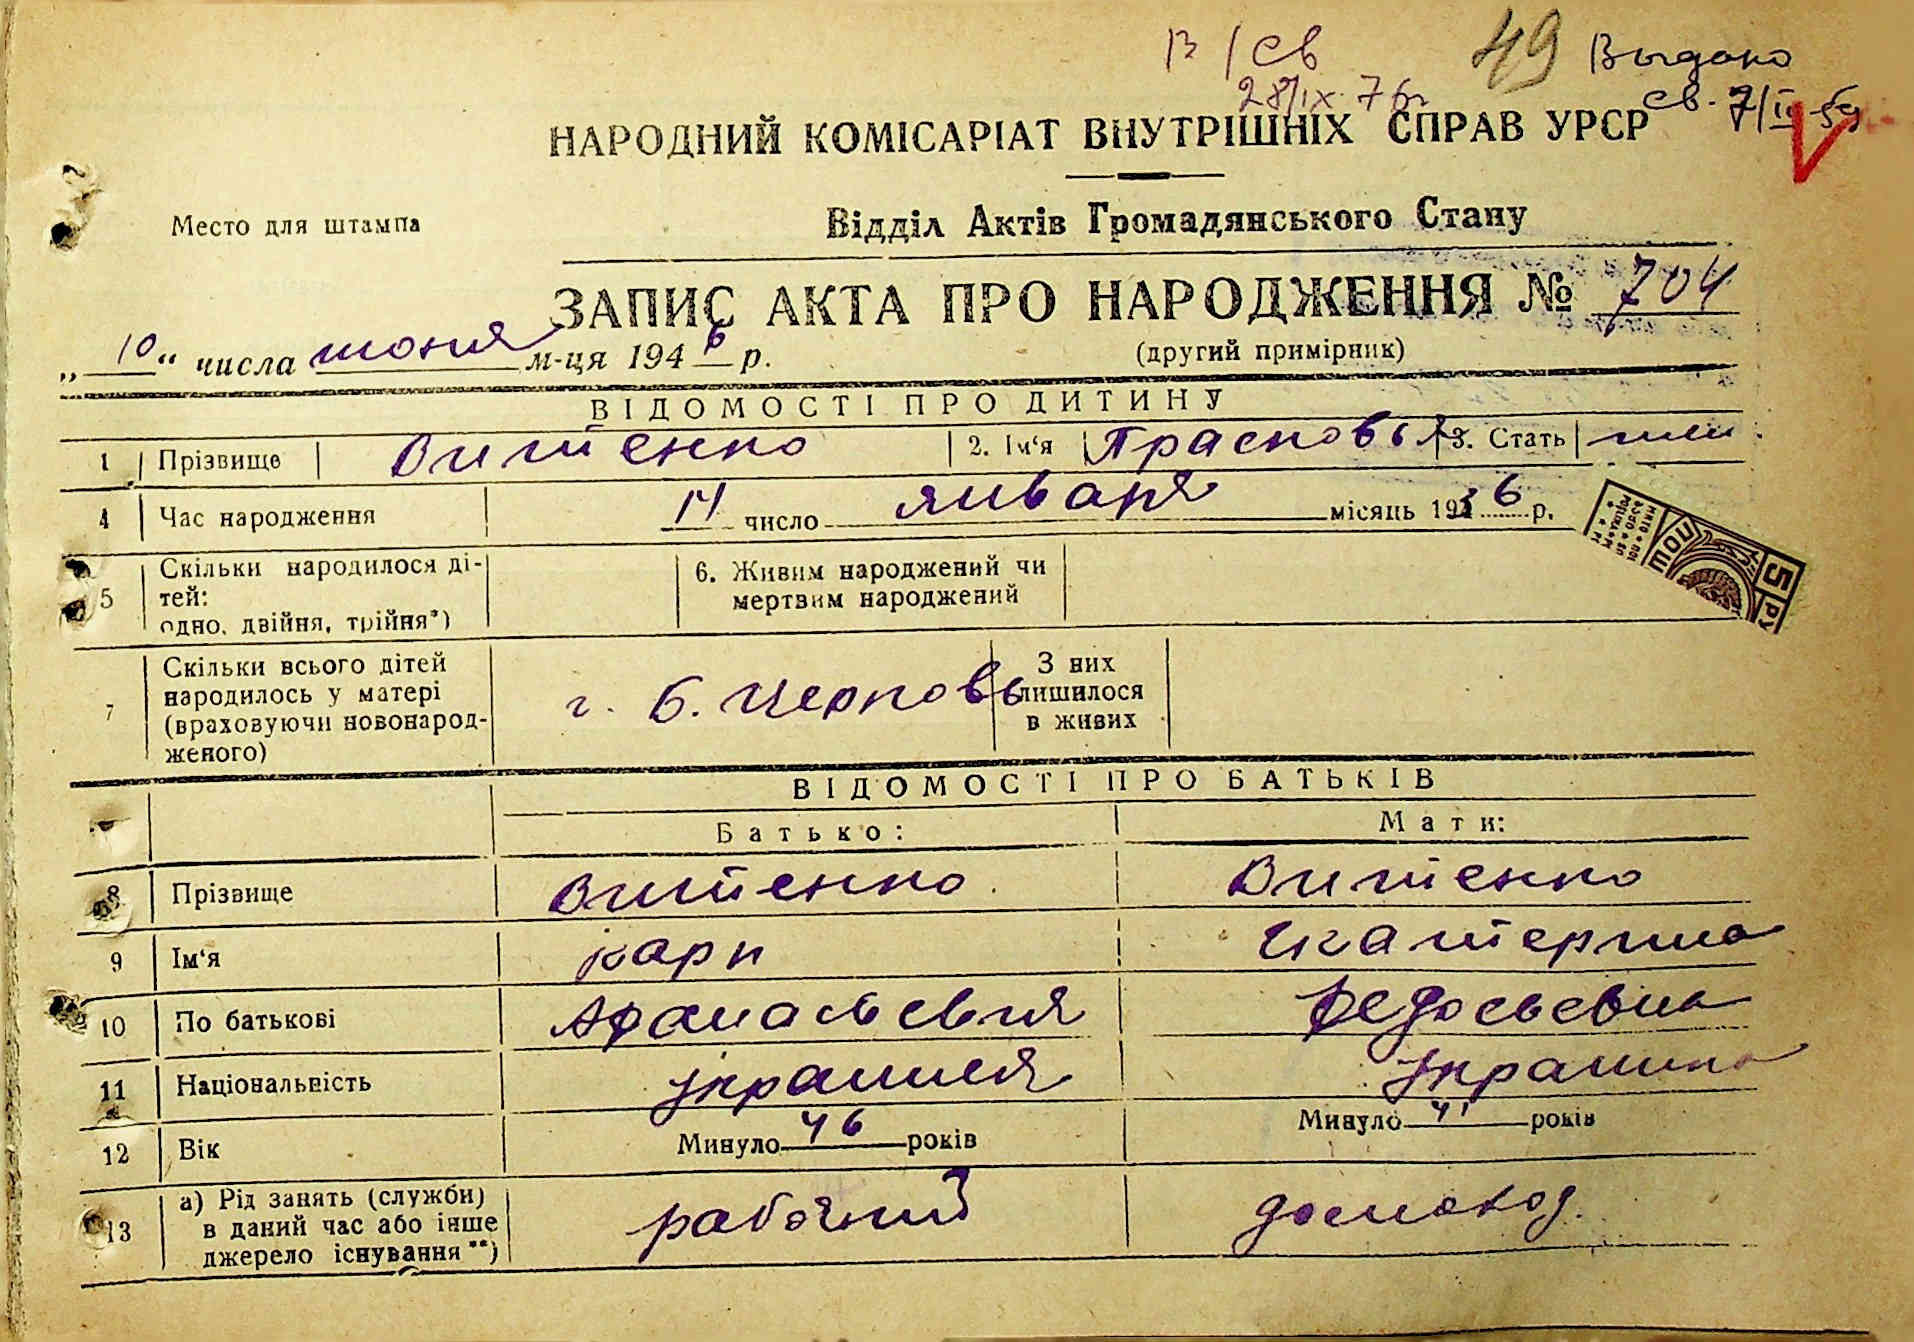 В/св 49 Выдано
28/IX.76г св. 7/II 59
НАРОДНИЙ КОМІСАРІАТ ВНУТРІШНІХ СПРАВ УРСР
Место для штампа
Відділ Актів Громадянського Стану
ЗАПИС АКТА ПРО НАРОДЖЕННЯ № 704
„10“ числа июня м-ця 1946 р.
(другий примірник)
ВІДОМОСТІ ПРО ДИТИНУ
1 Прізвище Витенко 2. Ім‘я Прасковья 3. Стать жен.
4 Час народження 14 число января місяць 1936 р.
5 Скільки народилося ді-
тей:
одно, двійня, трійня*)
6. Живим народжений чи
мертвим народжений
7 Скільки всього дітей
народилось у матері
(враховуючи новонарод-
женого)
г. Б. Церковь
З них
лишилося
в живих
5 РУ
ВІДОМОСТІ ПРО БАТЬКІВ
Батько: Мати:
8 Прізвище Витенко Витенко
9 Ім‘я Карп Екатерина
10 По батькові Афанасьевия Федосьевна
11 Національність украинея украинка
12 Вік Минуло 46 років Минуло 41 років
13 а) Рід занять (служби)
в даний час або інше
джерело існування**)
рабочий домохоз.